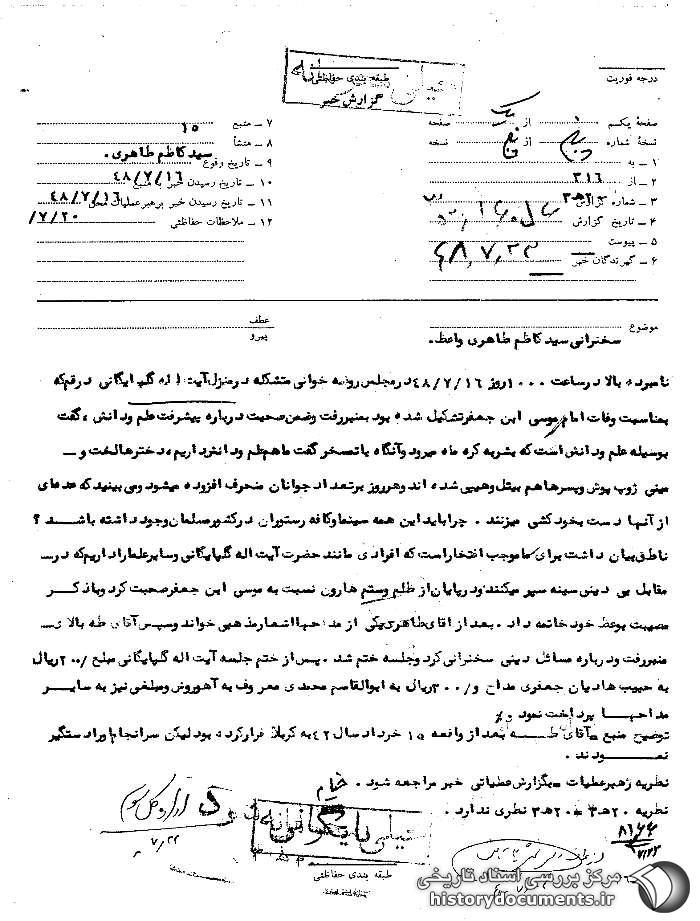 درجه فوریت
طبقه بندی حفاظتی
خیلی محرمانه
گزارش خبر
صفحه یکم از یک صفحه
نسخه شماره از نسخه
۱ – به
۲ – از ۳۱۶
۳ – شماره گزارش
۴ – تاریخ گزارش
۵ – پیوست
۶ – گیرندگان خبر ۴۸٫۷٫۲۳
۷ – منبع ۱۵
۸ – منشأ سید کاظم طاهری .
۹ – تاریخ وقوع ۴۸/۷/۱۶
۱۰ – تاریخ رسیدن خبر به منبع
۱۱ – تاریخ رسیدن خبر برهبر عملیات محل ۴۸/۷/۱۶
۱۲ – ملاحظات حفاظتی /۷/۲۰
موضوع سخنرانی سید کاظم طاهری واعظ .
عطف
پیرو
نامبرده بالا در ساعت ۱۰۰۰ روز ۴۸/۷/۱۶ در مجلس روضه خوانی متشکله در منزل آیت اله گلپایگانی در قم که
بمناسبت وفات امام موسی ابن جعفر تشکیل شده بود بمنبر رفت و ضمن صحبت درباره پیشرفت علم و دانش ، گفت
بوسیله علم و دانش است که بشر به کره ماه میرود و آنگاه با تمسخر گفت ما هم علم و دانش داریم ، دخترها لخت و –
مینی ژوپ پوش و پسرها هم بیتل و هیپی شده اند و هر روز بر تعداد جوانان منحرف افزوده میشود و می بینید که عده ای
از آنها دست بخود کشی میزنند . چرا باید این همه سینما و کافه رستوران در کشور مسلمان وجود داشته باشد ؟
ناطق بیان داشت برای ما موجب افتخار است که افرادی مانند حضرت آیت اله گلپایگانی و سایر علما را داریم که در –
مقابل بی دینی سینه سپر میکنند و در پایان از ظلم و ستم هارون نسبت به موسی ابن جعفر صحبت کرد و با ذکر
مصیبت بوعظ خود خاتمه داد . بعد از اقای طاهری یکی از مداحها اشعار مذهبی خواند و سپس آقای طه بالای –
منبر رفت و درباره مسائل دینی سخنرانی کرد و جلسه ختم شد . پس از ختم جلسه آیت اله گلپایگانی مبلغ /۲۰۰ ریال
به حبیب هادیان جعفری مداح و /۳۰۰ ریال به ابوالقاسم محمدی معروف به آهوروش و مبلغی نیز به سایر
مداحها پرداخت نمود
توضیح منبع – آقای طه بعد از واقعه ۱۵ خرداد سال ۴۲ به کربلا فرار کرده بود لیکن سرانجام او را دستگیر
نمودند .
نظریه رهبر عملیات – بگزارش عملیاتی خبر مراجعه شود .
نظریه ۲۰ ه‍ ۳ – ۲۰ ه‍ ۳ نظری ندارد .
خیلی محرمانه
بایگانی
اداره کل سوم
۷٫۲۲
طبقه بندی حفاظتی
مرکز بررسی اسناد تاریخی
historydocuments.ir